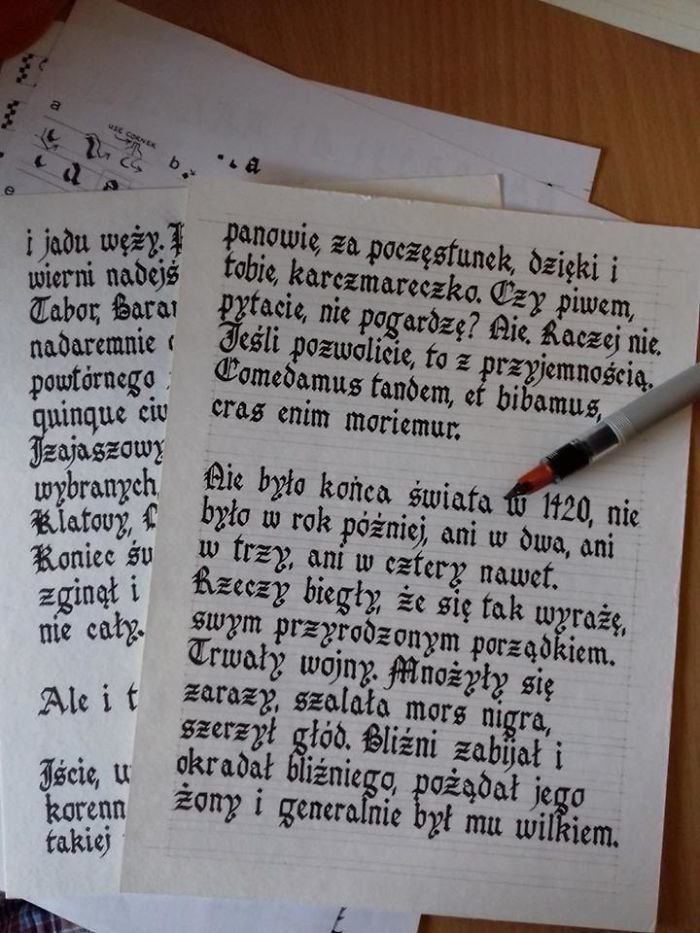 a
USE CORNER
b
a
e
i jadu węży.
wierni nadejś
Tabor, Baran
nadaremnie
powtórnego
quinque civ
Izajaszowy
wybranych,
Klatovy,
Koniec św
zginął i
nie cały.
Ale i t
Iście, w
korenn
takiej
panowie, za poczęstunek, dzięki i
tobie, karczmareczko. Czy piwem,
pytacie, nie pogardzę? Nie. Raczej nie.
Jeśli pozwolicie, to z przyjemnością.
Comedamus tandem, et bibamus,
cras enim moriemur.
Nie było końca świata w 1420, nie
było w rok później, ani w dwa, ani
w trzy, ani w cztery nawet.
Rzeczy biegły, że się tak wyrażę,
swym przyrodzonym porządkiem.
Trwały wojny. Mnożyły się
zarazy, szalała mors nigra,
szerzył głód. Bliźni zabijał i
okradał bliźniego, pożądał jego
żony i generalnie był mu wilkiem.